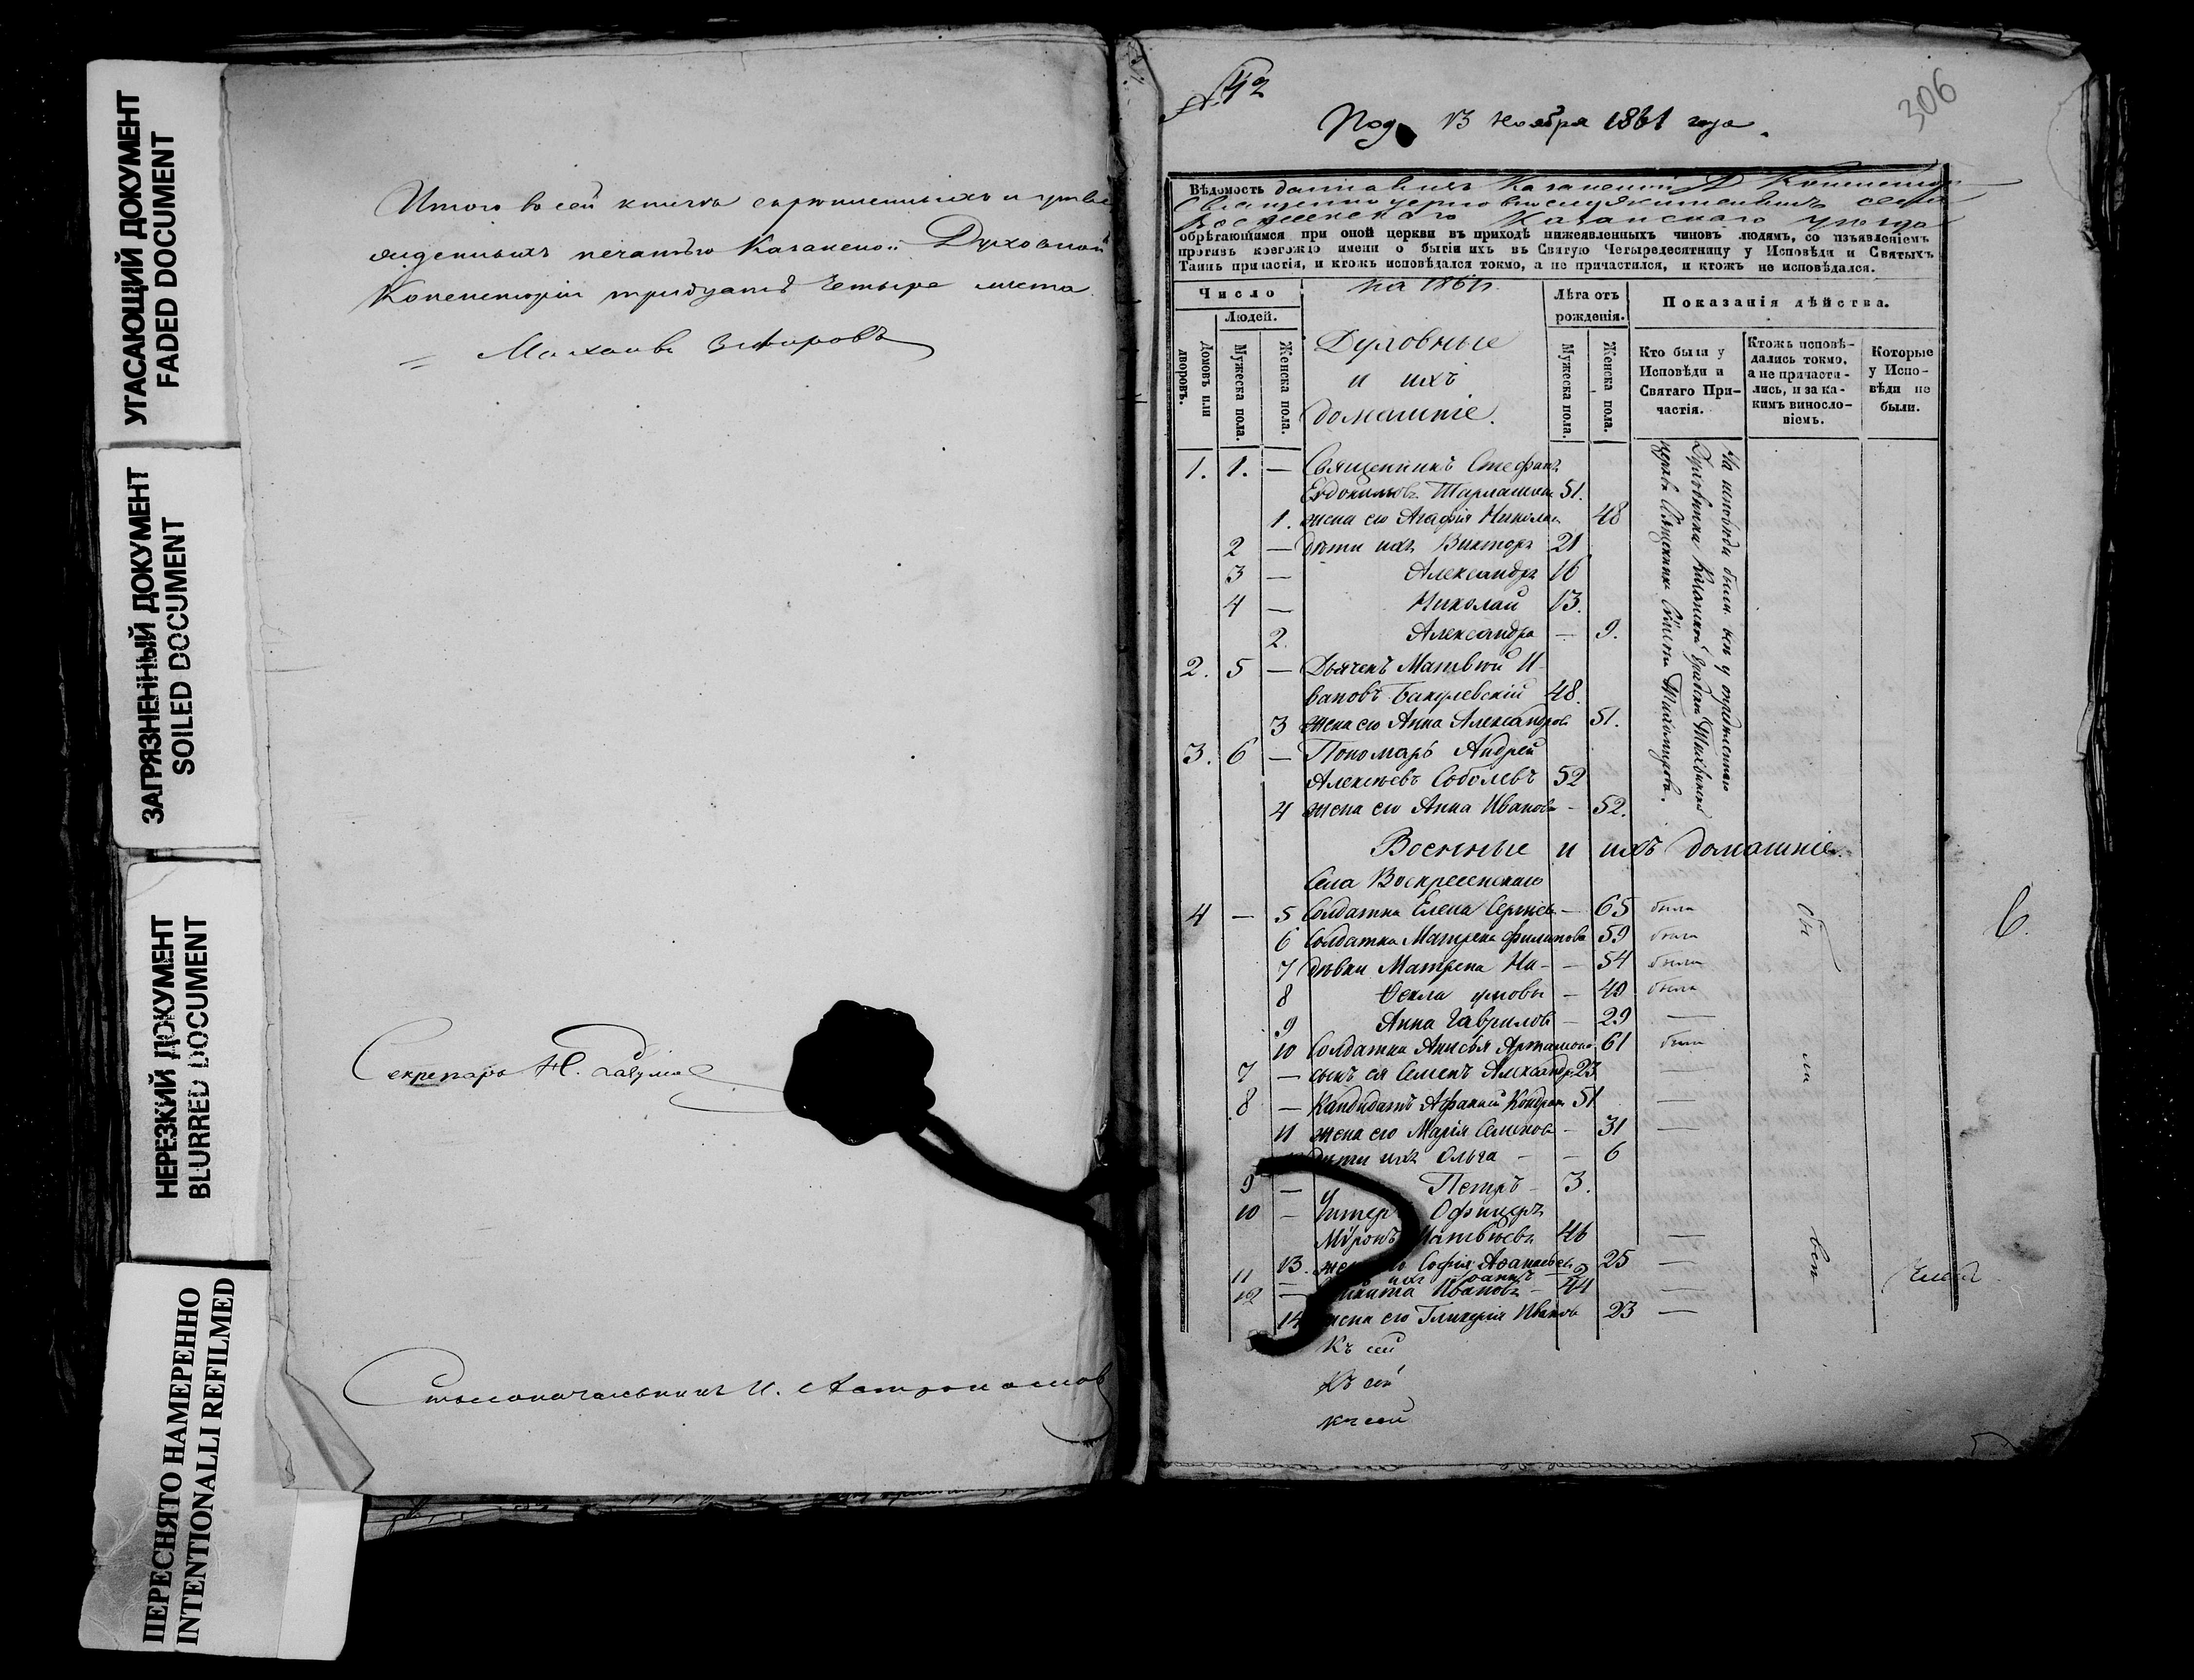 УГАСАЮЩИЙ ДОКУМЕНТ
FADED DOCUMENT
ЗАГРЯЗНЕННЫЙ ДОКУМЕНТ
SOILED DOCUMENT
НЕРЕЗКИЙ ДОКУМЕНТ
BLURRED DOCUMENT
ПЕРЕСНЯТО НАМЕРЕННО
INTENTIONALLI REFILMED
Итого въ сей книгѣ
печатью Казанской Духовной
Консисторіи тридцать четыре листа
Секретарь Н.
Столоначальникъ И. Астрономов
№ 42
306
Под. 13 Ноября 1861 года.
Вѣдомость Казанской Д. Консисторіи
Священноцерковнослужителями села
Воскресенскаго Казанскаго уезда
обрѣтающимся при оной церкви въ приходѣ нижеявленныхъ чиновъ людямъ, со изъявленіемъ
противъ коегожго имени о бытіи ихъ въ Святую Четыредесятницу у Исповѣди и Святыхъ
Таинъ причастія, и ктожъ исповѣдался токмо, а не причастился, и ктожъ не исповѣдался.
на 1861 г.
Число
Людей.
Домовъ или дворовъ.
Мужеска пола.
Женска пола.
Духовные
и ихъ
домашніе.
Лѣта отъ рожденія.
Мужеска пола.
Женска пола.
Показанія дѣйства.
Кто были у Исповѣди и Святаго Причастія.
Ктожъ исповѣдались токмо, а не причастились, и за какимъ винословіемъ.
Которые у Исповѣди не были.
1. 1. — Священникъ Стефанъ
Евдокимовъ 51.
1. жена его Агафія Никола 48
2 — дѣти ихъ Викторъ 21
3 — Александръ 16
4 — Николай 13.
2. Александра — 9.
2. 5 — Дьячекъ Матвѣй И-
вановъ Бакулевскій 48.
3 жена его Анна Александров 51.
3. 6 — Пономарь Андрей
Алексѣевъ Соболевъ 52
4 жена его Анна Иванова — 52.
Военные и ихъ домашніе.
Села Воскресенскаго
4 — 5 Солдатка Елена Сергѣев — 65 была
6 Солдатка Матрена Филипова 59 была
7 дѣвки Матрена На- — 54 была
8 Ѳекла умовы — 40 была
9 Анна Гаврилов — 29 —
10 Солдатка Анисья Артамоно 61 была
7 — сынъ ея Семенъ Александр 23 —
8 — Кандидатъ Афанасій Кондрат 51 —
11 жена его Марія Семенов — 31 —
дѣти ихъ Ольга — — 6
9 — Петръ — 3.
10 — Унтеръ Офицеръ
Міронъ Матвѣевъ 46 —
13. жена его Софія Аѳанасьев 25 —
11 — ихъ Іоаннъ — 2
12 — Никита Ивановъ — 44 —
14 жена его Гликерія Иванов 23 —
Къ сей
Къ сей
къ сей